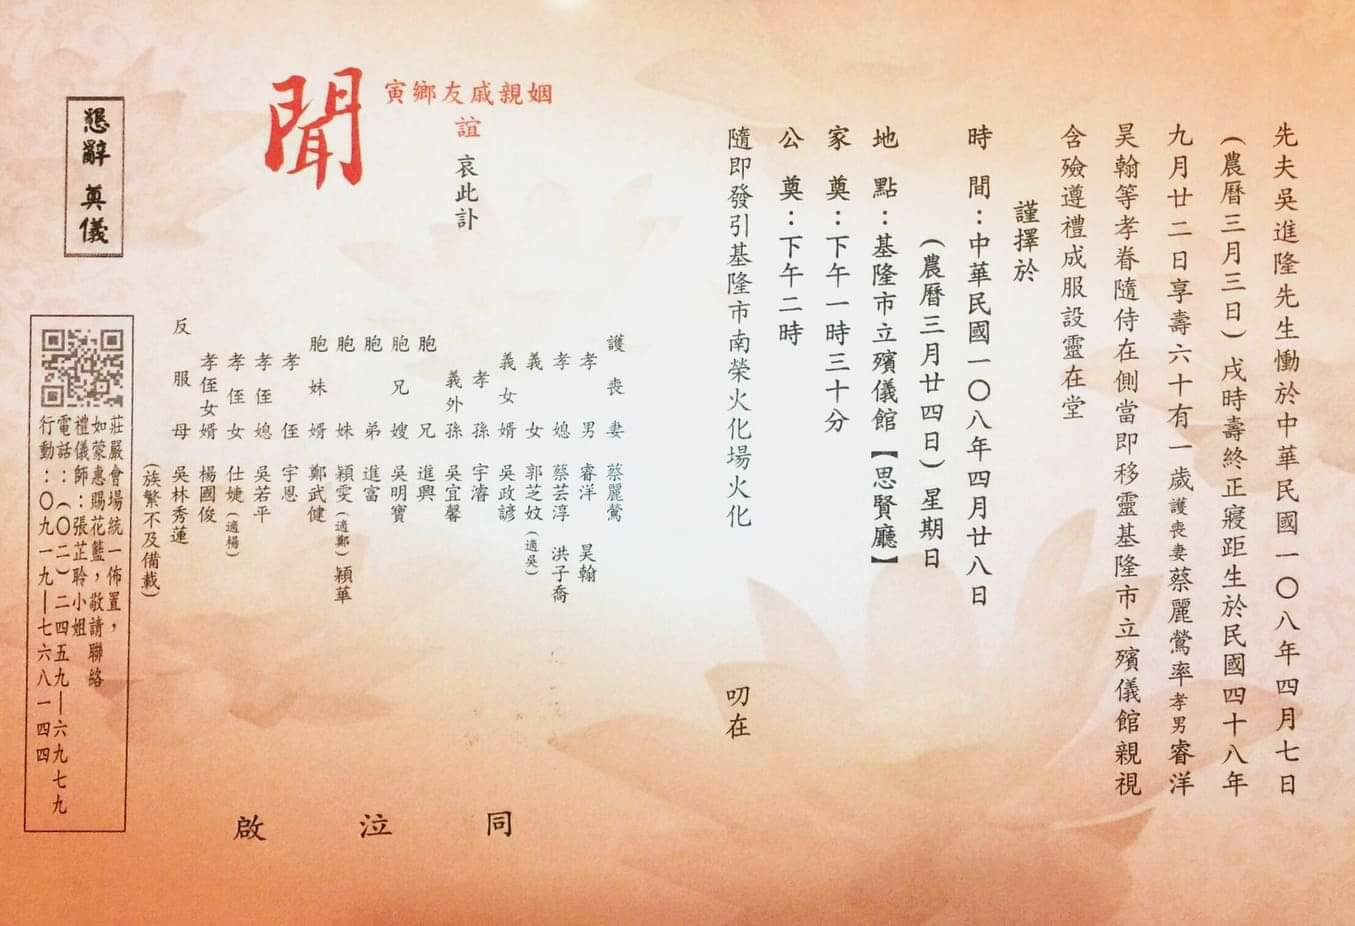 先夫吳進隆先生慟於中華民國一〇八年四月七日
(農曆三月三日)戌時壽終正寢距生於民國四十八年
九月廿二日享壽六十有一歲護喪妻蔡麗鶯率孝男睿洋
昊翰等孝眷隨侍在側當即移靈基隆市立殯儀館親視
含殮遵禮成服設靈在堂
謹擇於
時間:中華民國一〇八年四月廿八日
(農曆三月廿四日)星期日
地點:基隆市立殯儀館【思賢廳】
家奠:下午一時三十分
公奠:下午二時
隨即發引基隆市南榮火化場火化
叨在
姻親戚友鄉寅
誼
哀此訃
聞
護喪妻 蔡麗鶯
孝男 睿洋 昊翰
孝媳 蔡芸淳 洪子喬
義女 郭之妏(適吳)
義女婿 吳政諺
孝孫 宇濬
義外孫 吳宜馨
胞兄 進興
胞兄嫂 吳明寶
胞弟 進富
胞妹 穎雯(適鄭)穎華
胞妹婿 鄭武健
孝侄 宇恩
孝侄媳 吳若平
孝侄女 仕婕(適楊)
孝侄女婿 楊國俊
反服母 吳林秀蓮
(族繁不及備載)
同泣啟
懇辭奠儀
莊嚴會場統一佈置,
如蒙惠賜花籃,敬請聯絡
禮儀師:張芷聆小姐
電話:(〇二)二四五九—六九七九
行動:〇九一九—七六八一四四